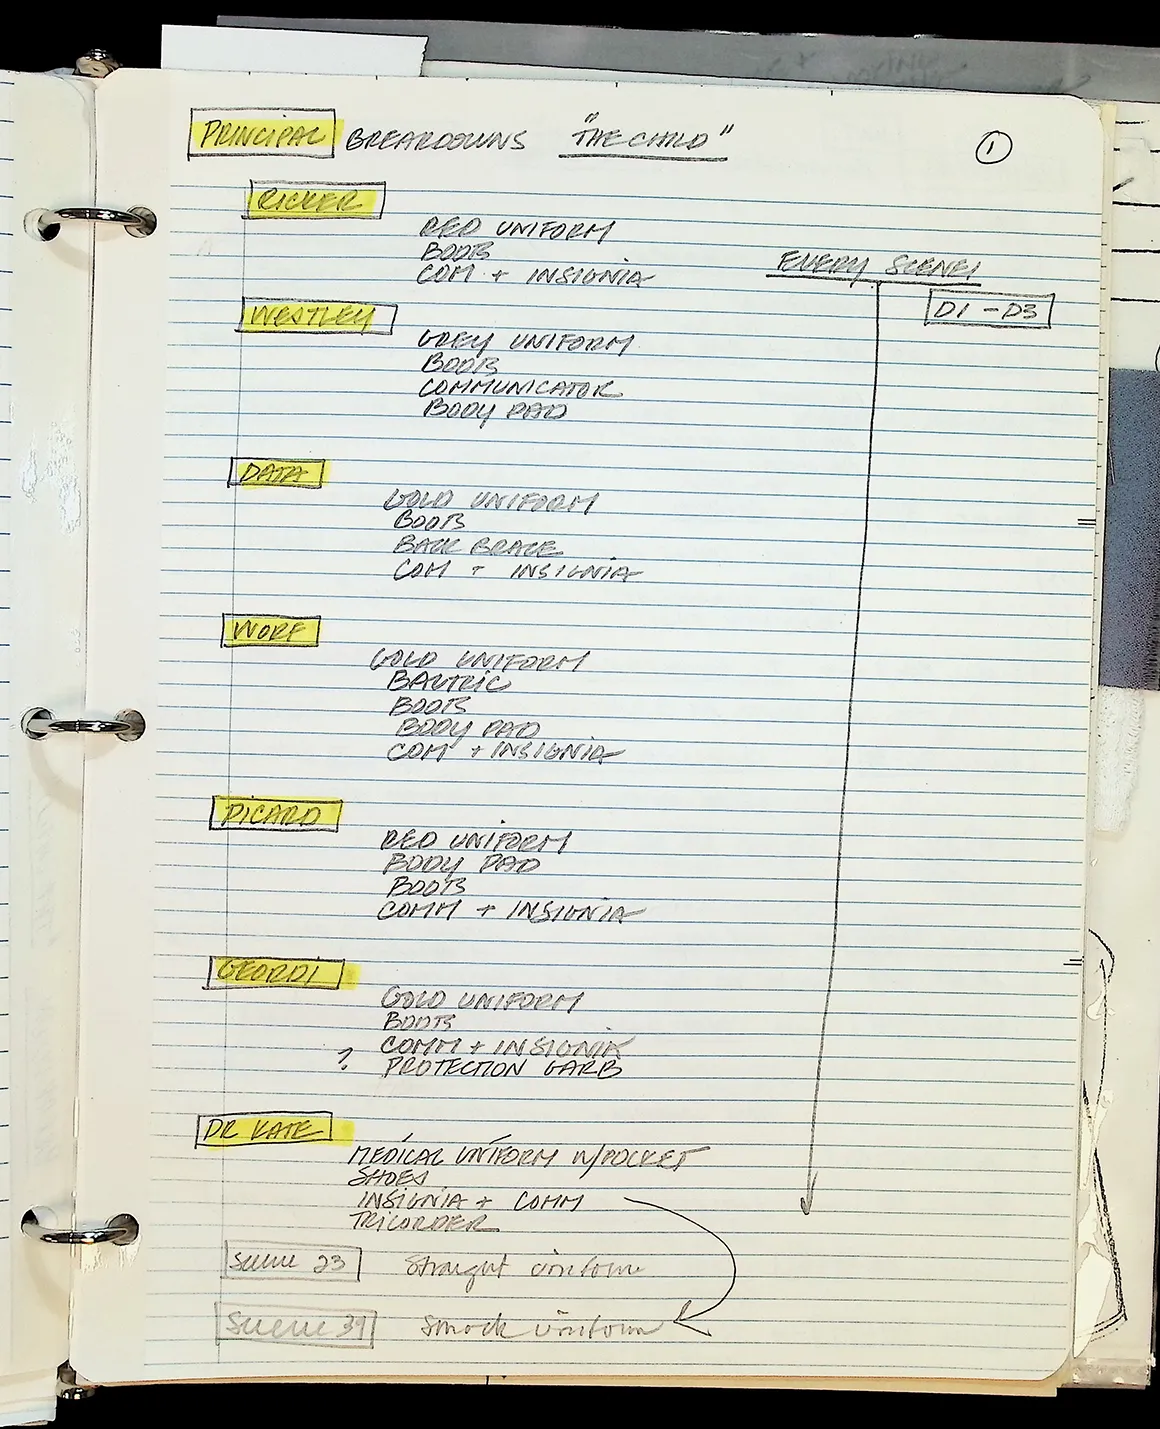 PRINCIPAL BREAKDOWNS "THE CHILD" 1
RICKER
RED UNIFORM
BOOTS
COM + INSIGNIA
EVERY SCENE!
D1 - D3
WESTLEY
GREY UNIFORM
BOOTS
COMMUNICATOR
BODY PAD
DATA
GOLD UNIFORM
BOOTS
BACK BRACE
COM + INSIGNIA
WORF
GOLD UNIFORM
BALTRIC
BOOTS
BODY PAD
COM + INSIGNIA
PICARD
RED UNIFORM
BODY PAD
BOOTS
COMM + INSIGNIA
GEORDI
GOLD UNIFORM
BOOTS
COMM + INSIGNIA
? PROTECTION GARB
DR KATE
MEDICAL UNIFORM W/POCKET
SHOES
INSIGNIA + COMM
TRICORDER
Scene 23 Straight uniform
Scene 39 Smock uniform